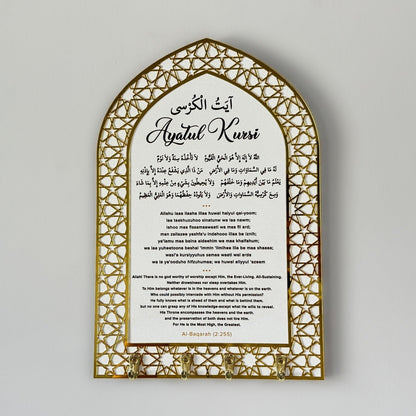 آيَتُ الْكُرْسِى
Ayatul Kursi
اَللهُ لَا إِلَهَ إِلَّا هُوَ الْحَيُّ الْقَيُّومُ لَا تَأْخُذُهُ سِنَةٌ وَلَا نَوْمٌ
لَهُ مَا فِي السَّمَاوَاتِ وَمَا فِي الْأَرْضِ مَنْ ذَا الَّذِي يَشْفَعُ عِنْدَهُ إِلَّا بِإِذْنِهِ
يَعْلَمُ مَا بَيْنَ أَيْدِيهِمْ وَمَا خَلْفَهُمْ وَلَا يُحِيطُونَ بِشَيْءٍ مِنْ عِلْمِهِ إِلَّا بِمَا شَاءَ
وَسِعَ كُرْسِيُّهُ السَّمَاوَاتِ وَالْأَرْضَ وَلَا يَئُودُهُ حِفْظُهُمَا وَهُوَ الْعَلِيُّ الْعَظِيمُ
Allahu laaa ilaaha illaa huwal haiyul qai-yoom;
laa taakhuzuhoo sinatunw wa laa nawm;
lahoo maa fissamaawaati wa maa fil ard;
man zallazee yashfa'u indahooo illaa be iznih;
ya'lamu maa baina aideehim wa maa khalfahum;
wa laa yuheetoona beshai 'immin 'ilmihee illa be maa shaaa;
wasi'a kursiyyuhus samaa waati wal ards
wa la ya'ooduho hifzuhumaa; wa huwal aliyyul 'azeem
Allah! There is no god worthy of worship except Him, the Ever-Living, All-Sustaining.
Neither drowsiness nor sleep overtakes Him.
To Him belongs whatever is in the heavens and whatever is on the earth.
Who could possibly intercede with Him without His permission?
He fully knows what is ahead of them and what is behind them,
but no one can grasp any of His knowledge-except what He wills to reveal.
His Throne encompasses the heavens and the earth,
and the preservation of both does not tire Him.
For He is the Most High, the Greatest.
Al-Baqarah (2:255)